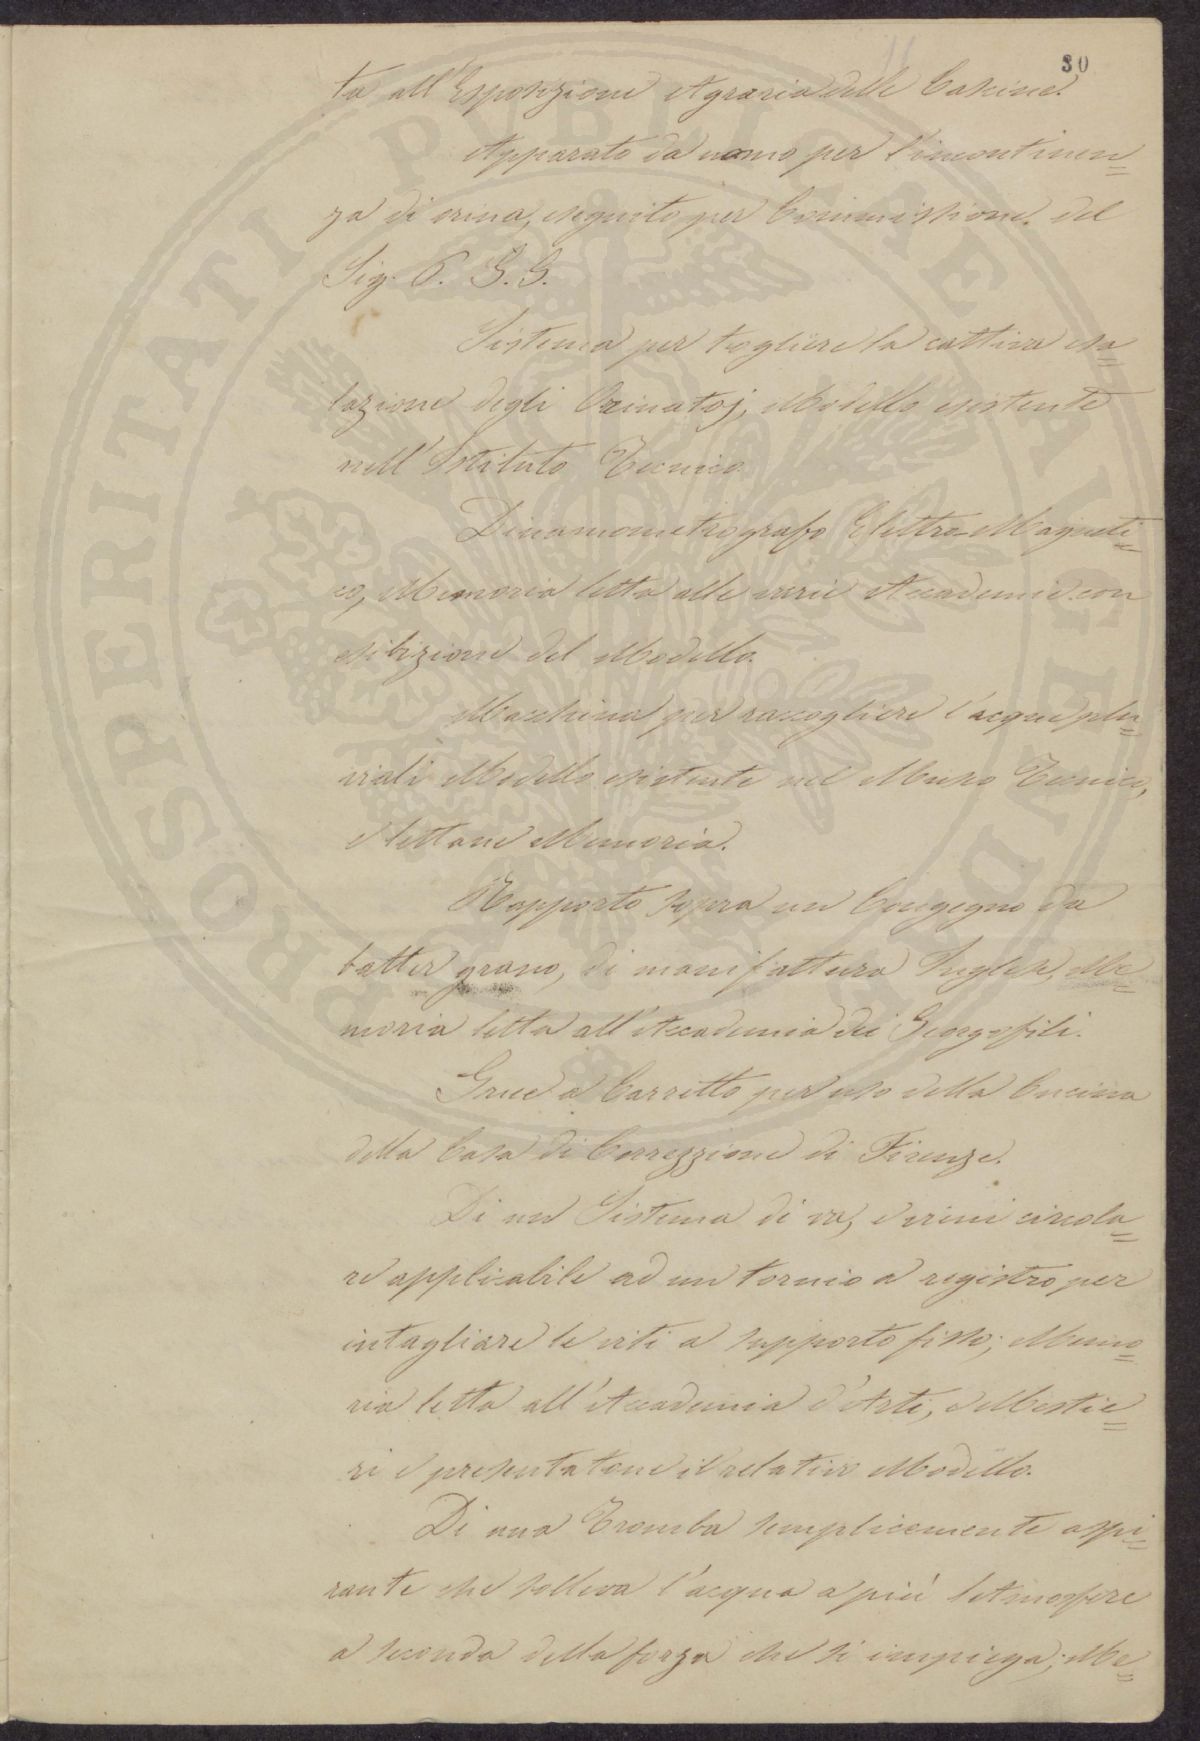 30
ta all'Esposizione Agraria delle Cascine.
Apparato da uomo per l'incontinen=
za di orina, eseguito per Commissione del
Sig. G. G.
Sistema per togliere la cattiva esa=
lazione degli Orinatoj, Modello esistente
nell'Istituto Tecnico.
Dinamometrografo Elettro-Magneti=
co, Memoria letta alle varie Accademie con
esibizione del Modello.
Macchina per raccogliere l'acque plu=
viali Modello esistente nel Museo Tecnico,
e lettane Memoria.
Rapporto sopra un Congegno da
batter grano, di manifattura Inglese, Me=
moria letta all'Accademia dei Georgofili.
Grue a Carretto per uso della Cucina
della Casa di Correzzione di Firenze.
Di un Sistema di va, e vieni circola=
re applicabile ad un tornio a registro per
intagliare le viti a supporto fisso; Memo=
ria letta all'Accademia d'Arti, e Mestie=
ri e presentatone il relativo Modello.
Di una Tromba semplicemente aspi=
rante che solleva l'acqua a più Atmosfere
a seconda della forza che si impiega; Me=
PROSPERITATI PVBLICAE AVGENDAE